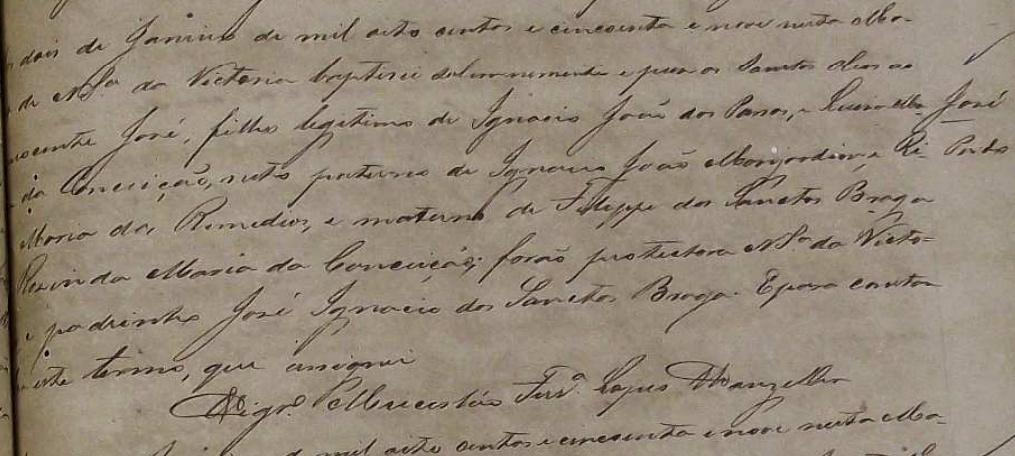 dois de Janeiro de mil oito centos e cincoenta e nove nesta Ma-
de N. Sra. da Victoria baptisei solemnemente e puz os Santos oleos ao
nocente José, filho legitimo de Ignacio João dos Passos, e Luiza Ma. José
da Conceição, neto paterno de Ignacio João Monjardim, e Ri- Pardo
Maria dos Remedios, e materno de Filippe dos Sanctos Braga
Maria da Conceição; forão protectora N. Sa. da Victo-
e padrinho José Ignacio dos Sanctos Braga. E para constar
este termo, que assignei
Vigro. Miecesláo Ferra. Lopes Wanzeller
de mil oito centos e cincoenta e nove nesta Ma-